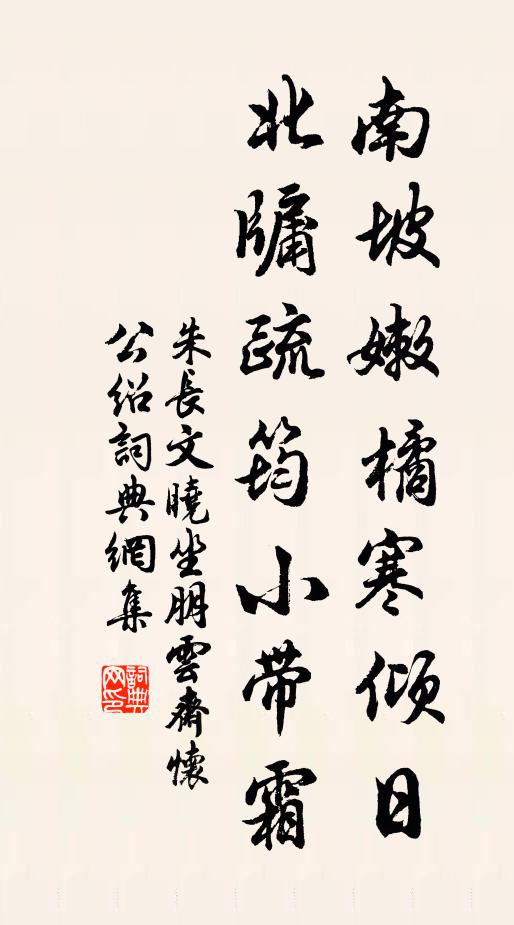 南坡嫩橘寒倾日
北牖疏筠小带霜
朱長文曉坐朋雲齋懷
公绍詞典網集
詞典網印